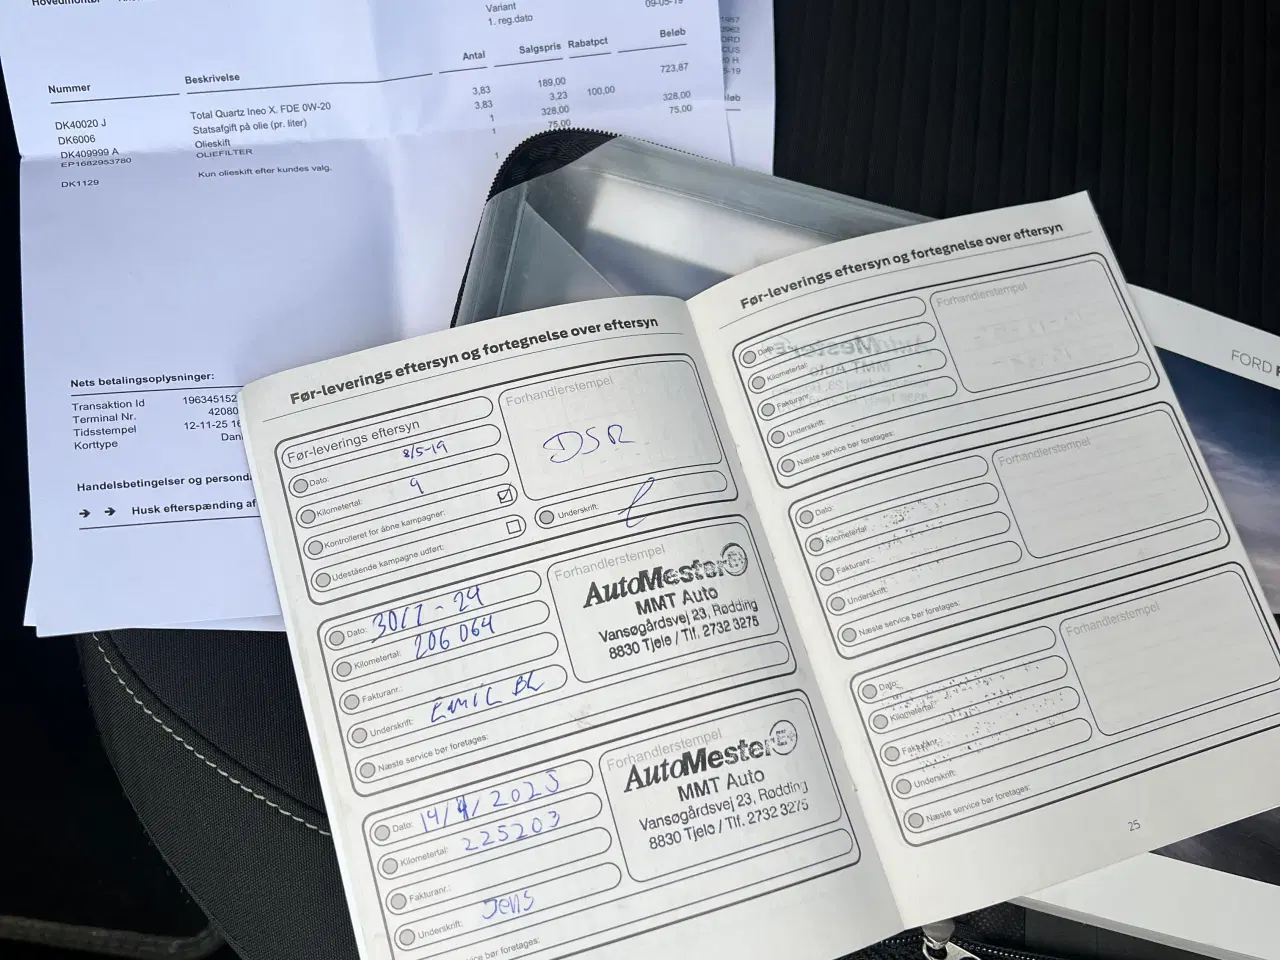 Variant
1. reg.dato
09-05-19
Nummer Beskrivelse Antal Salgspris Rabatpct Beløb
DK40020 J Total Quartz Ineo X. FDE 0W-20 3,83 189,00 723,87
DK6006 Statsafgift på olie (pr. liter) 3,83 3,23 100,00
DK409999 A Olieskift 1 328,00 328,00
EP1682953780 OLIEFILTER 1 75,00 75,00
DK1129 Kun olieskift efter kundes valg. 1
Nets betalingsoplysninger:
Transaktion Id 196345152
Terminal Nr. 42080
Tidsstempel 12-11-25
Korttype Dan
Handelsbetingelser og persond
Husk efterspænding af
Før-leverings eftersyn og fortegnelse over eftersyn
Før-leverings eftersyn
Forhandlerstempel
Dato: 8/5-19
DSR
Kilometertal: 9
Kontrolleret for åbne kampagner:
Underskrift:
Udestående kampagne udført:
Dato: 30/7-24
Kilometertal: 206 064
Fakturanr.:
Underskrift: EMIL BL
Næste service bør foretages:
Forhandlerstempel
AutoMester
MMT Auto
Vansøgårdsvej 23, Rødding
8830 Tjele / Tlf. 2732 3275
Dato: 14/4/2025
Kilometertal: 225203
Fakturanr.:
Underskrift: Jens
Næste service bør foretages:
Forhandlerstempel
AutoMester
MMT Auto
Vansøgårdsvej 23, Rødding
8830 Tjele / Tlf. 2732 3275
Før-leverings eftersyn og fortegnelse over eftersyn
Dato:
Kilometertal:
Fakturanr.:
Underskrift:
Næste service bør foretages:
Forhandlerstempel
Dato:
Kilometertal:
Fakturanr.:
Underskrift:
Næste service bør foretages:
Forhandlerstempel
Dato:
Kilometertal:
Fakturanr.:
Underskrift:
Næste service bør foretages:
Forhandlerstempel
25
FORD